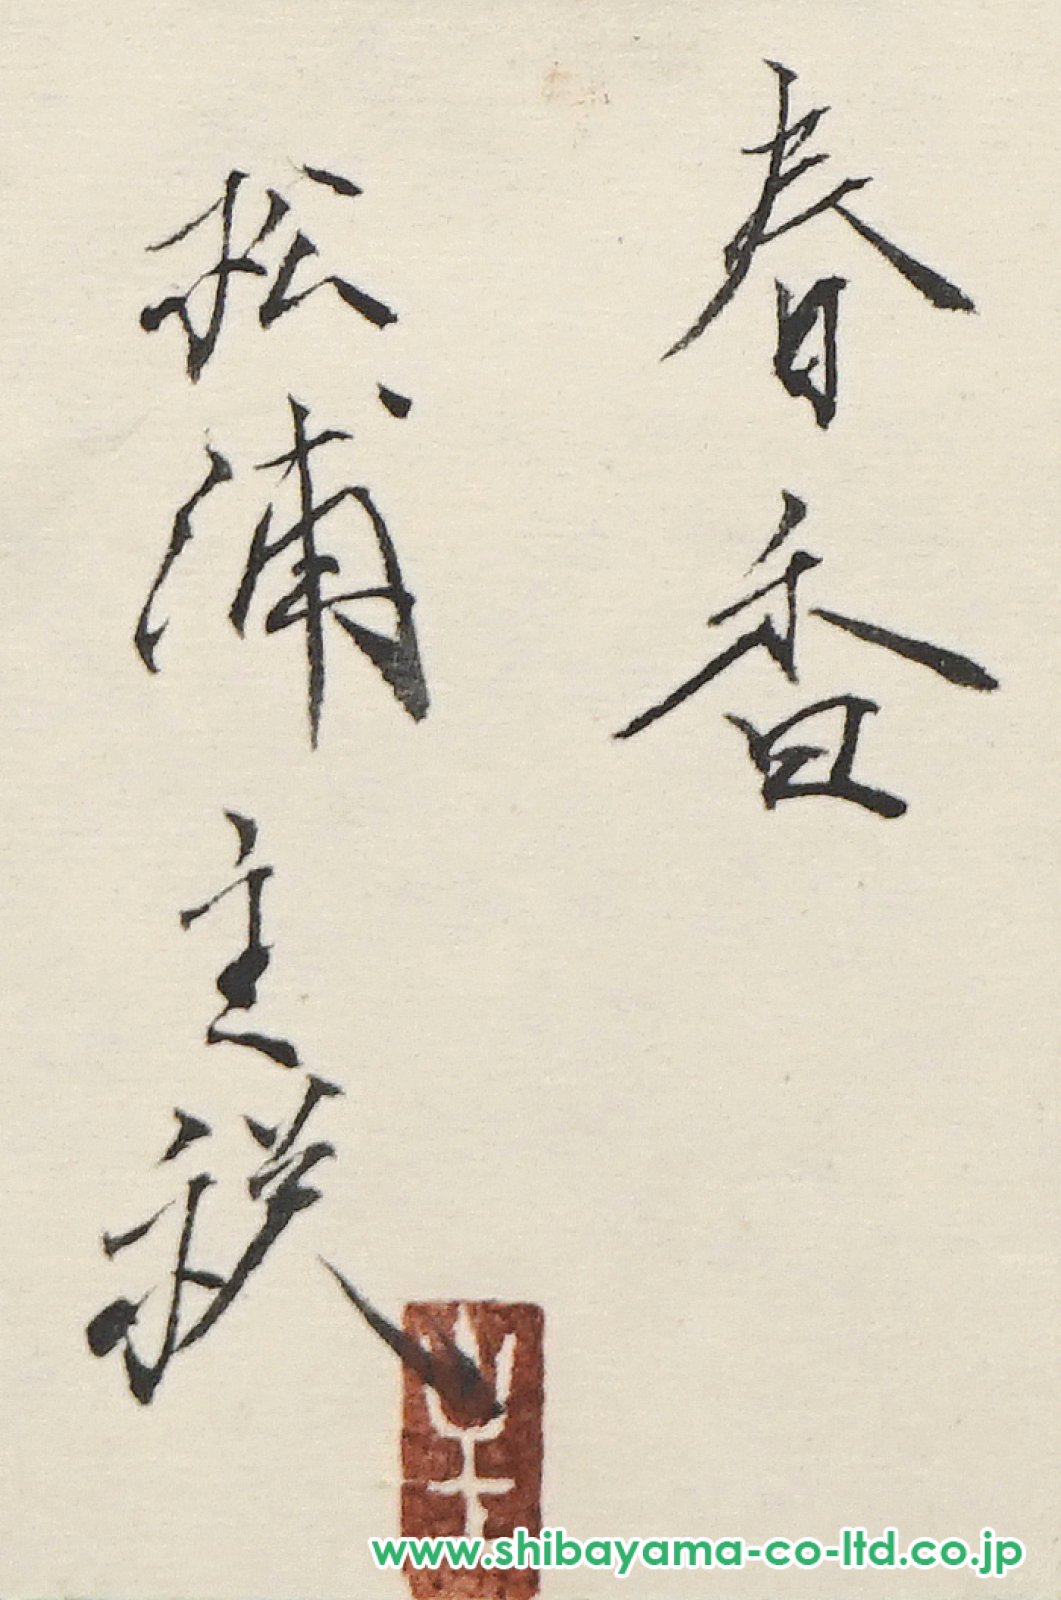 春香
松浦主税
www.shibayama-co-ltd.co.jp